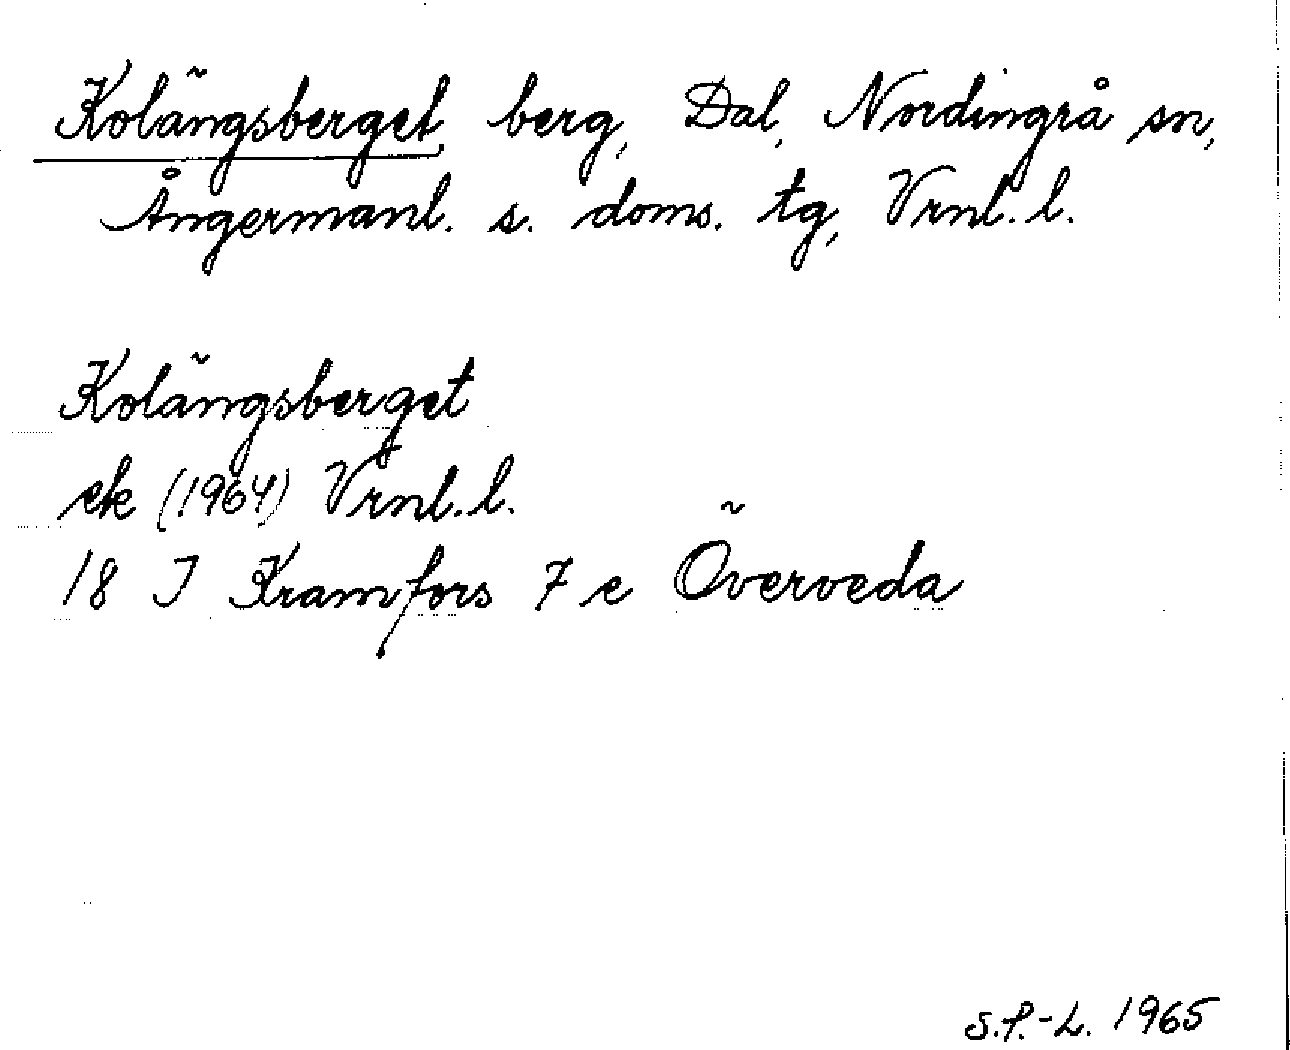 Kolängsberget, berg, Dal, Nordingrå sn,
Ångermanl. s. doms. tg, Vrnl. l.
Kolängsberget
ek (1964) Vrnl. l.
18 I Kramfors 7 e Överveda
S.P.-L. 1965